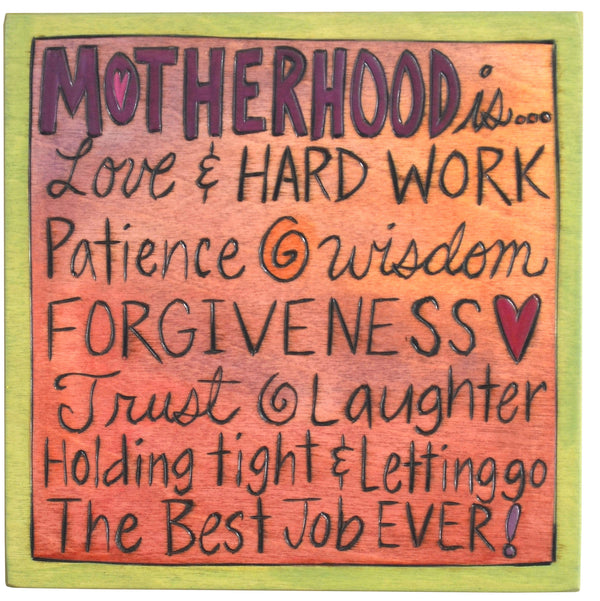 MOTHERHOOD is...
Love & HARD WORK
Patience wisdom
FORGIVENESS
Trust Laughter
Holding tight & Letting go
The Best Job EVER!